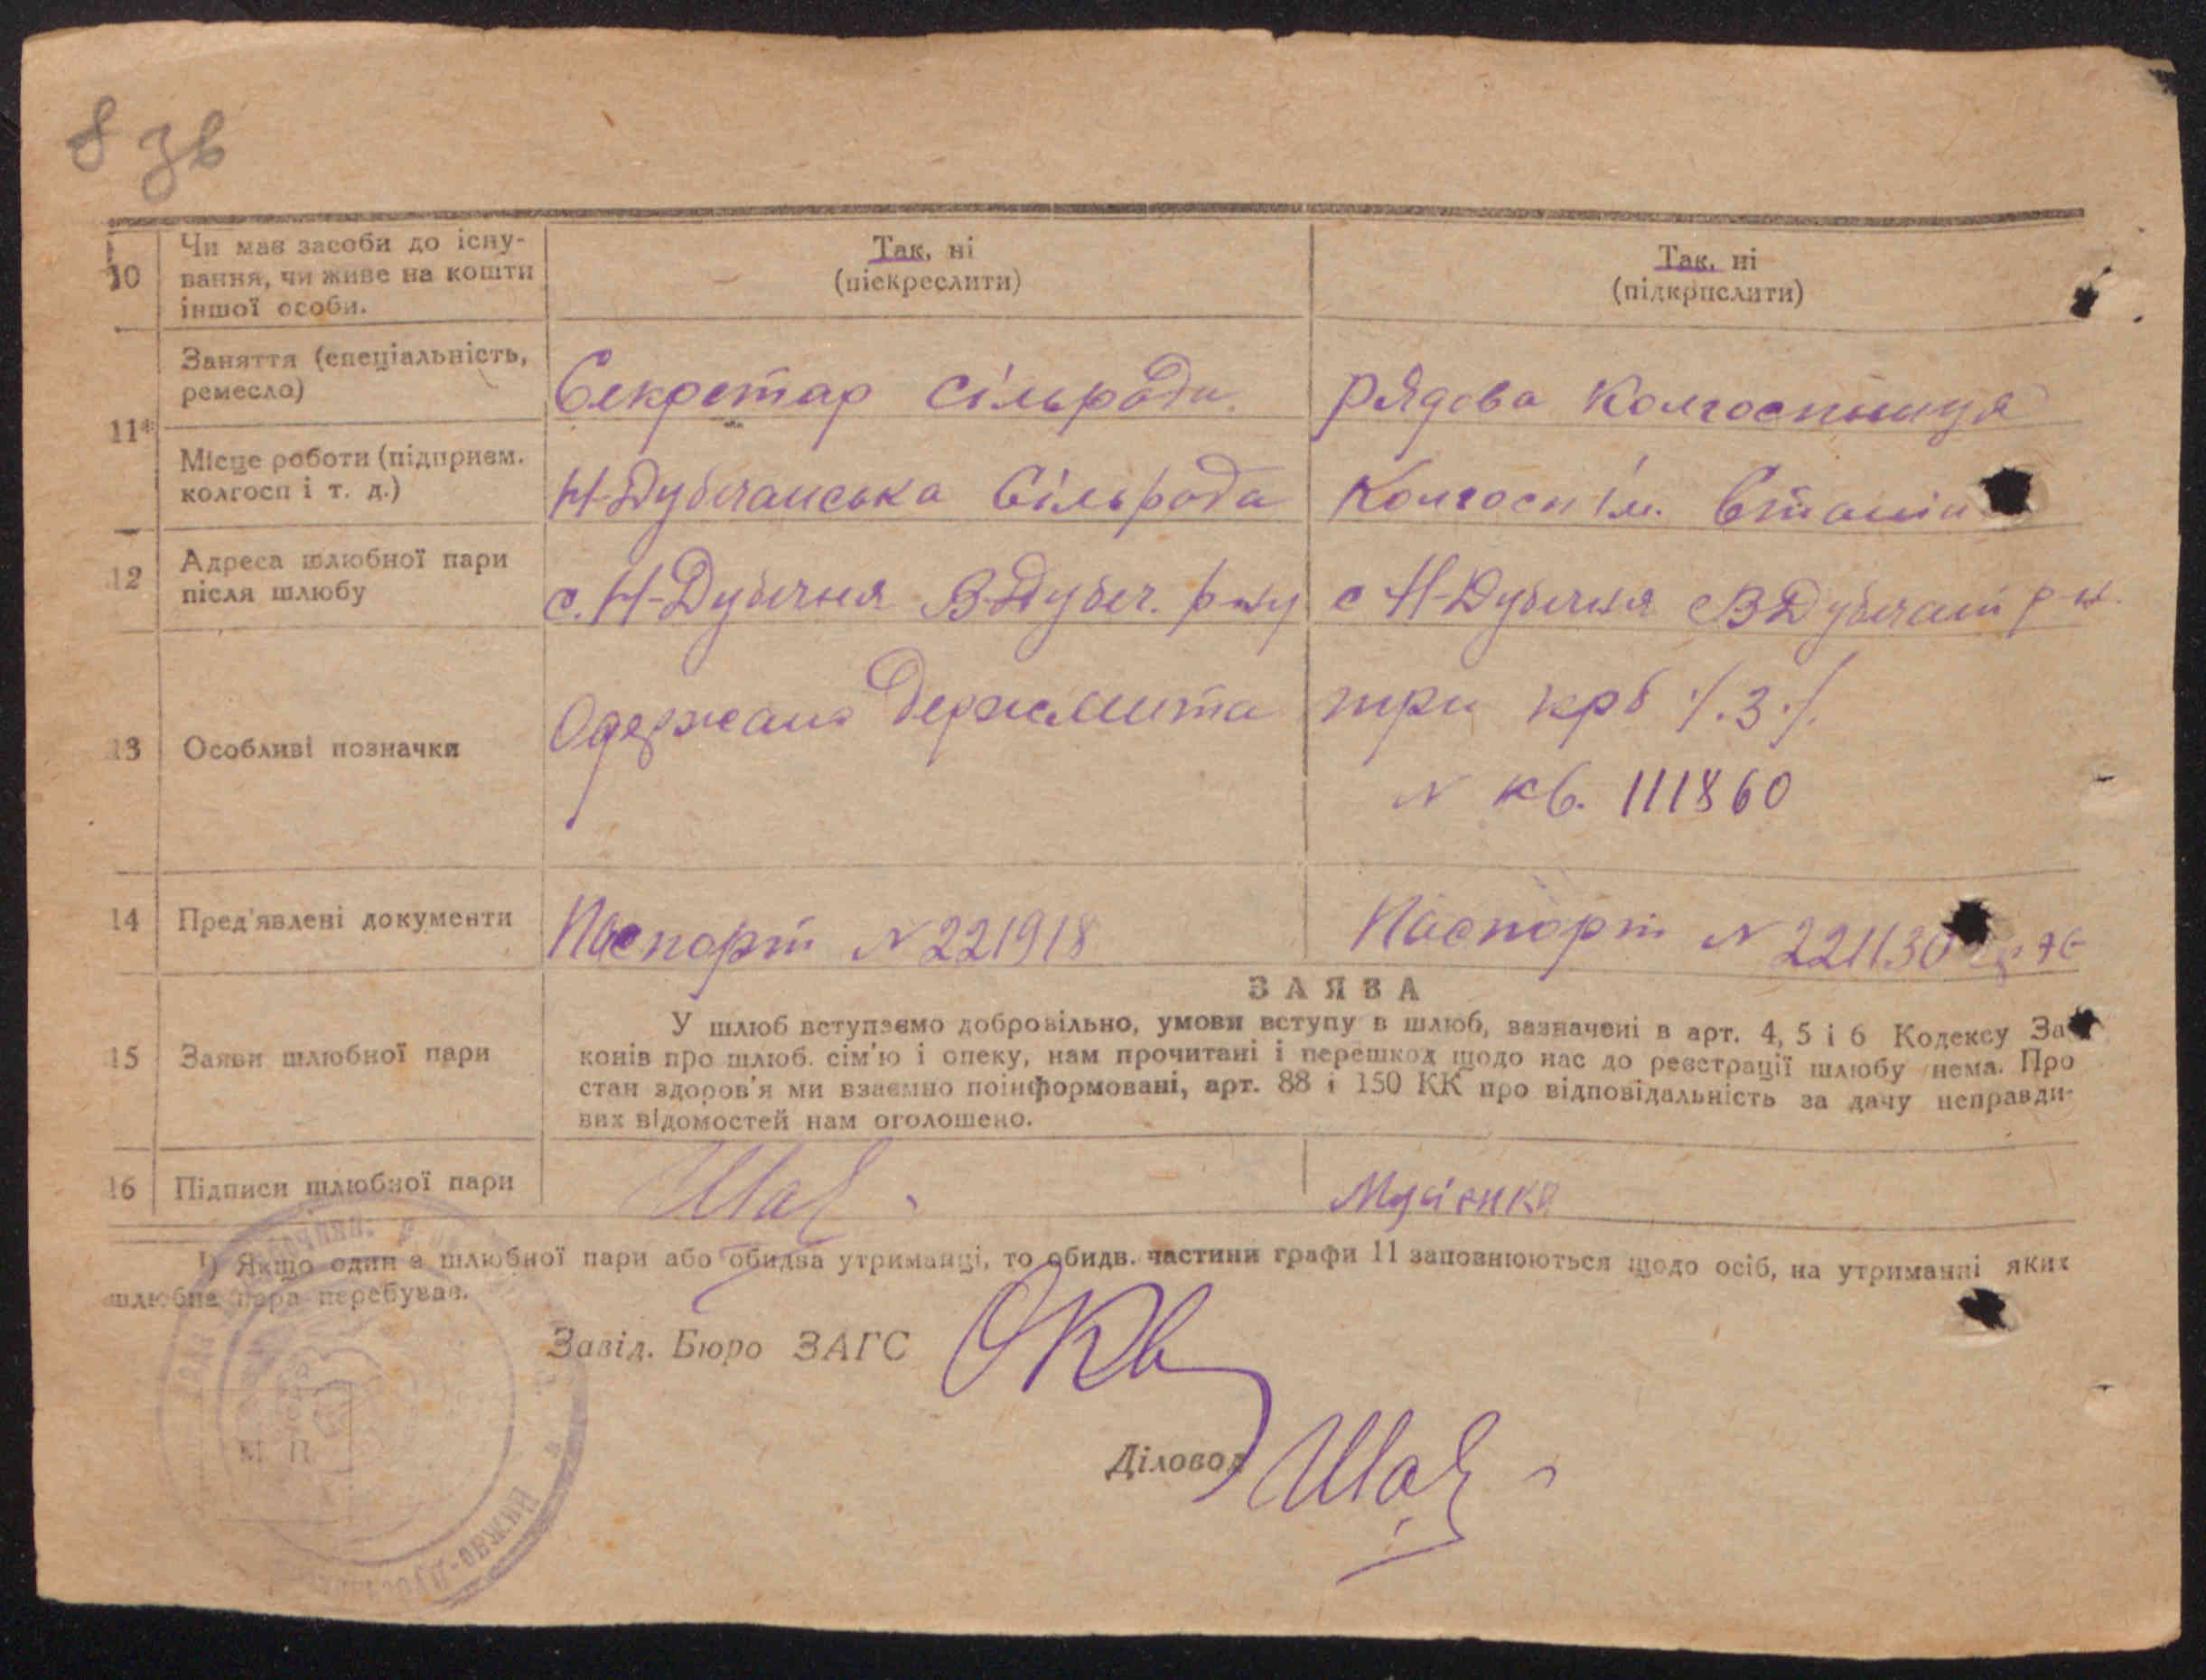 8 зв
10 Чи має засоби до існу-
вання, чи живе на кошти
іншої особи.
Так, ні
(піекреслити)
Так, ні
(підкрислити)
11*
Заняття (спеціальність,
ремесло)
Секретар сільради.
Рядова колгоспниця
Місце роботи (підприєм.
колгосп і т. д.)
Н-Дубечанська сільрада
Колгосп ім. Сталін
12 Адреса шлюбної пари
після шлюбу
с. Н-Дубечня В-Дубеч. р-ну
с Н-Дубечня В Дубечан р-н.
13 Особливі позначки
Одержано Держмита
три крб /.3./.
N кв. 111860
14 Пред'явлені документи
Паспорт N 221918
Паспорт N 221130
15 Заяви шлюбної пари
ЗАЯВА
У шлюб вступаємо добровільно, умови вступу в шлюб, зазначені в арт. 4, 5 і 6 Кодексу За-
конів про шлюб. сім'ю і опеку, нам прочитані і перешкод щодо нас до реєстрації шлюбу нема. Про
стан здоров'я ми взаємно поінформовані, арт. 88 і 150 КК про відповідальність за дачу неправди-
вих відомостей нам оголошено.
16 Підписи шлюбної пари
Мусієнко
1) Якщо один з шлюбної пари або обидва утриманці, то обидв. частини графи 11 заповнюються щодо осіб, на утриманні яких
шлюбна пара перебуває.
Завід. Бюро ЗАГС
Діловод
М П